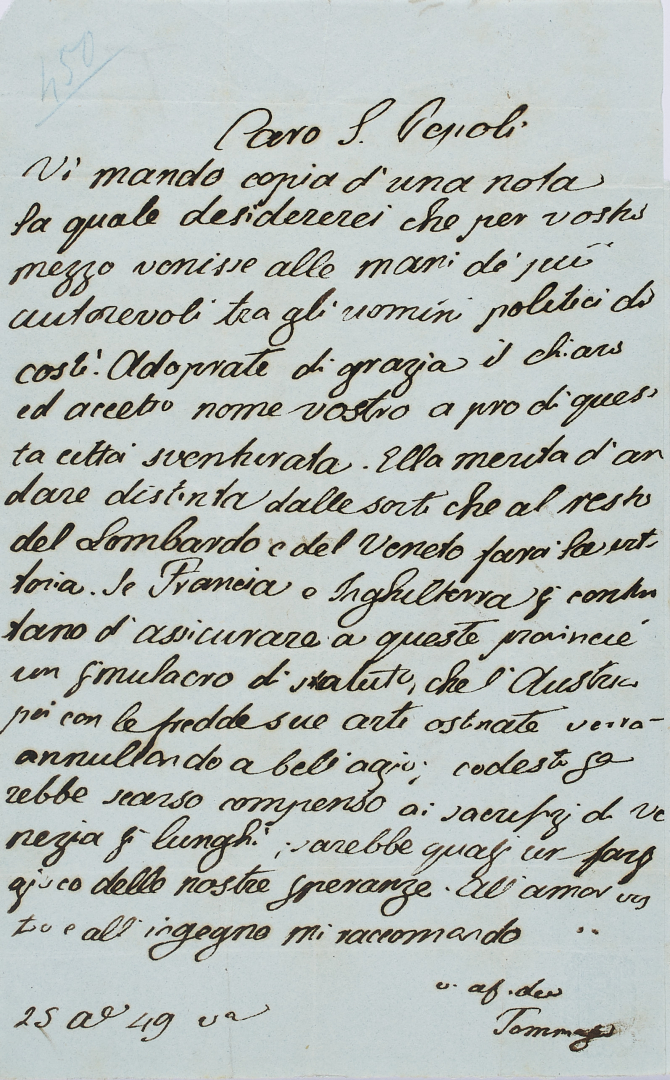 450
Caro S. Pepoli
Vi mando copia d'una nota
la quale desidererei che per vostro
mezzo venisse alle mani de' più
autorevoli tra gli uomini politici di
costì. Adoprate di grazia il chiaro
ed accetto nome vostro a pro di ques-
ta città sventurata. Ella merita d'an
dare distinta dalle sorti che al resto
del Lombardo e del Veneto farà la vit-
toria. Se Francia e Inghilterra si conten
tano d'assicurare a queste provincie
un simulacro di statuto, che l'Austria
poi con le fredde sue arti ostinate verrà
annullando a bell'agio; codesto sa
rebbe scarso compenso ai sacrifizj di Ve
nezia sì lunghi; sarebbe quasi un
delle nostre speranze. All'amor vos
tro e all'ingegno mi raccomando
v. af. dev
Tommaseo
25 49